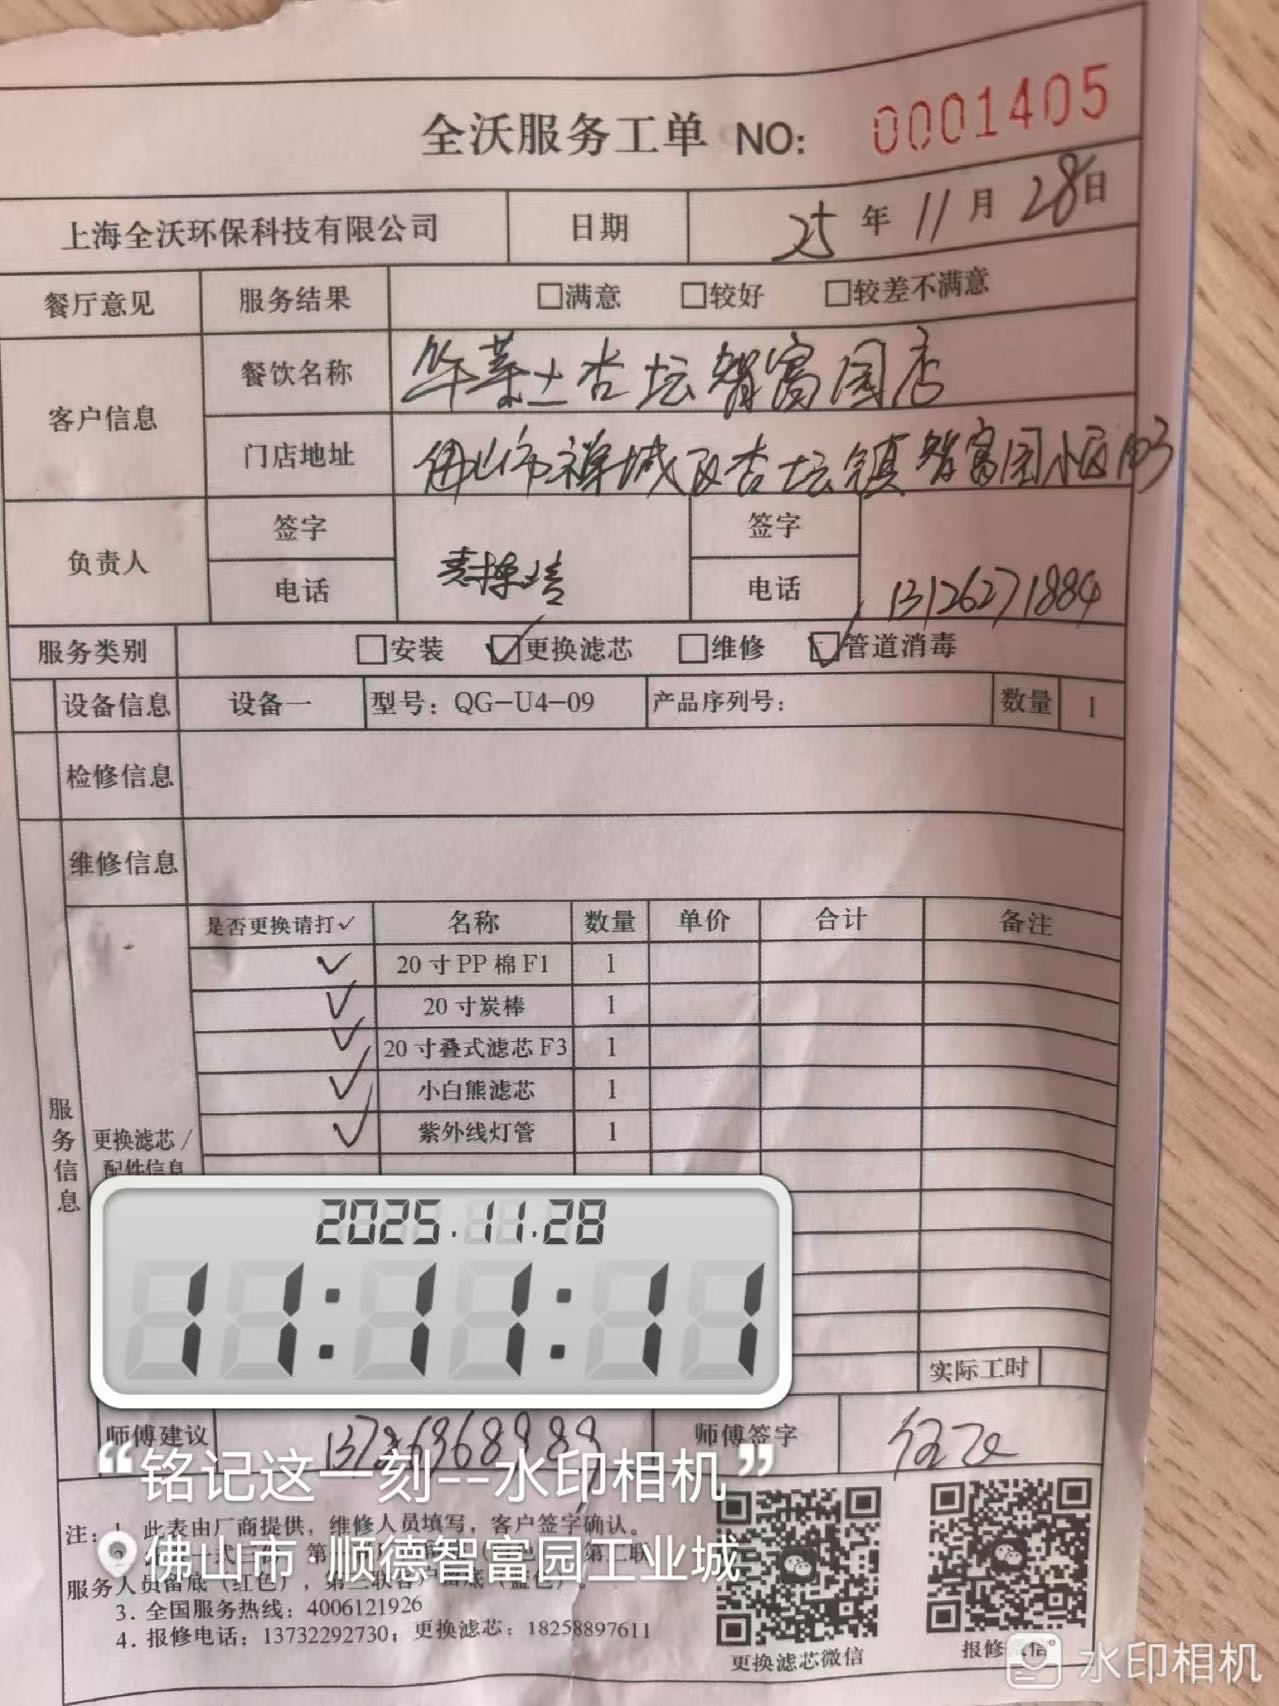 全沃服务工单 NO: 0001405
上海全沃环保科技有限公司 日期 25年11月28日
餐厅意见 服务结果 □满意 □较好 □较差不满意
客户信息 餐饮名称 华莱士杏坛智富园店
门店地址 佛山市禅城区杏坛镇智富园小区103
负责人 签字 签字
电话 电话 13126271884
服务类别 □安装 ☑更换滤芯 □维修 ☑管道消毒
设备信息 设备一 型号：QG-U4-09 产品序列号： 数量 1
检修信息
维修信息
服务信息 更换滤芯/配件信息
是否更换请打✓ 名称 数量 单价 合计 备注
✓ 20寸PP棉F1 1
✓ 20寸炭棒 1
✓ 20寸叠式滤芯F3 1
✓ 小白熊滤芯 1
✓ 紫外线灯管 1
2025.11.28
11:11:11
实际工时
师傅建议 师傅签字
“铭记这一刻--水印相机”
注：1. 此表由厂商提供，维修人员填写，客户签字确认。
佛山市·顺德智富园工业城
服务人员留底（红色），
3. 全国服务热线：4006121926
4. 报修电话：13732292730；更换滤芯：18258897611
更换滤芯微信 报修微信
水印相机